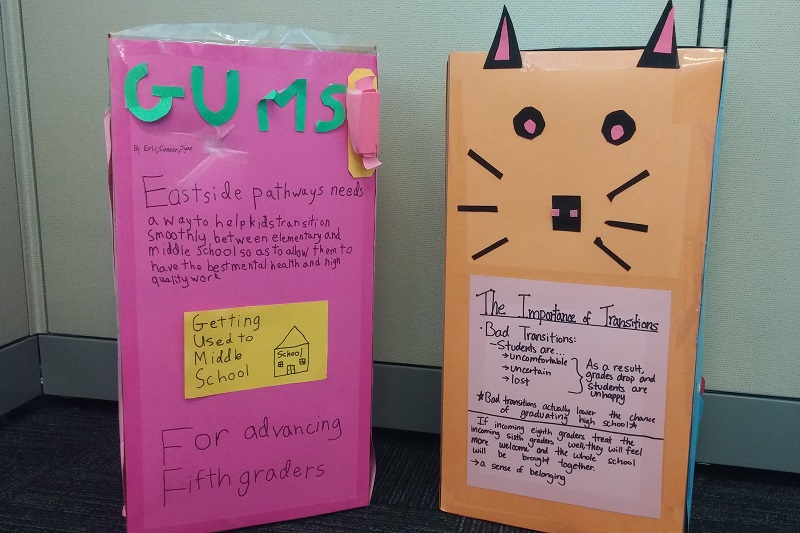 GUMS
By Eric, Cameron, Tyne
Eastside pathways needs
a way to help kids transition
smoothly between elementary and
middle school so as to allow them to
have the best mental health and high
quality work
Getting
Used to
Middle
School
School
For advancing
Fifth graders
The Importance of Transitions
• Bad Transitions:
- Students are...
→ uncomfortable
→ uncertain
→ lost
As a result,
grades drop and
students are
unhappy
★Bad transitions actually lower the chance
of graduating high school★
If incoming eighth graders treat the
incoming sixth graders well, they will feel
more welcome and the whole school
will be brought together.
→ a sense of belonging